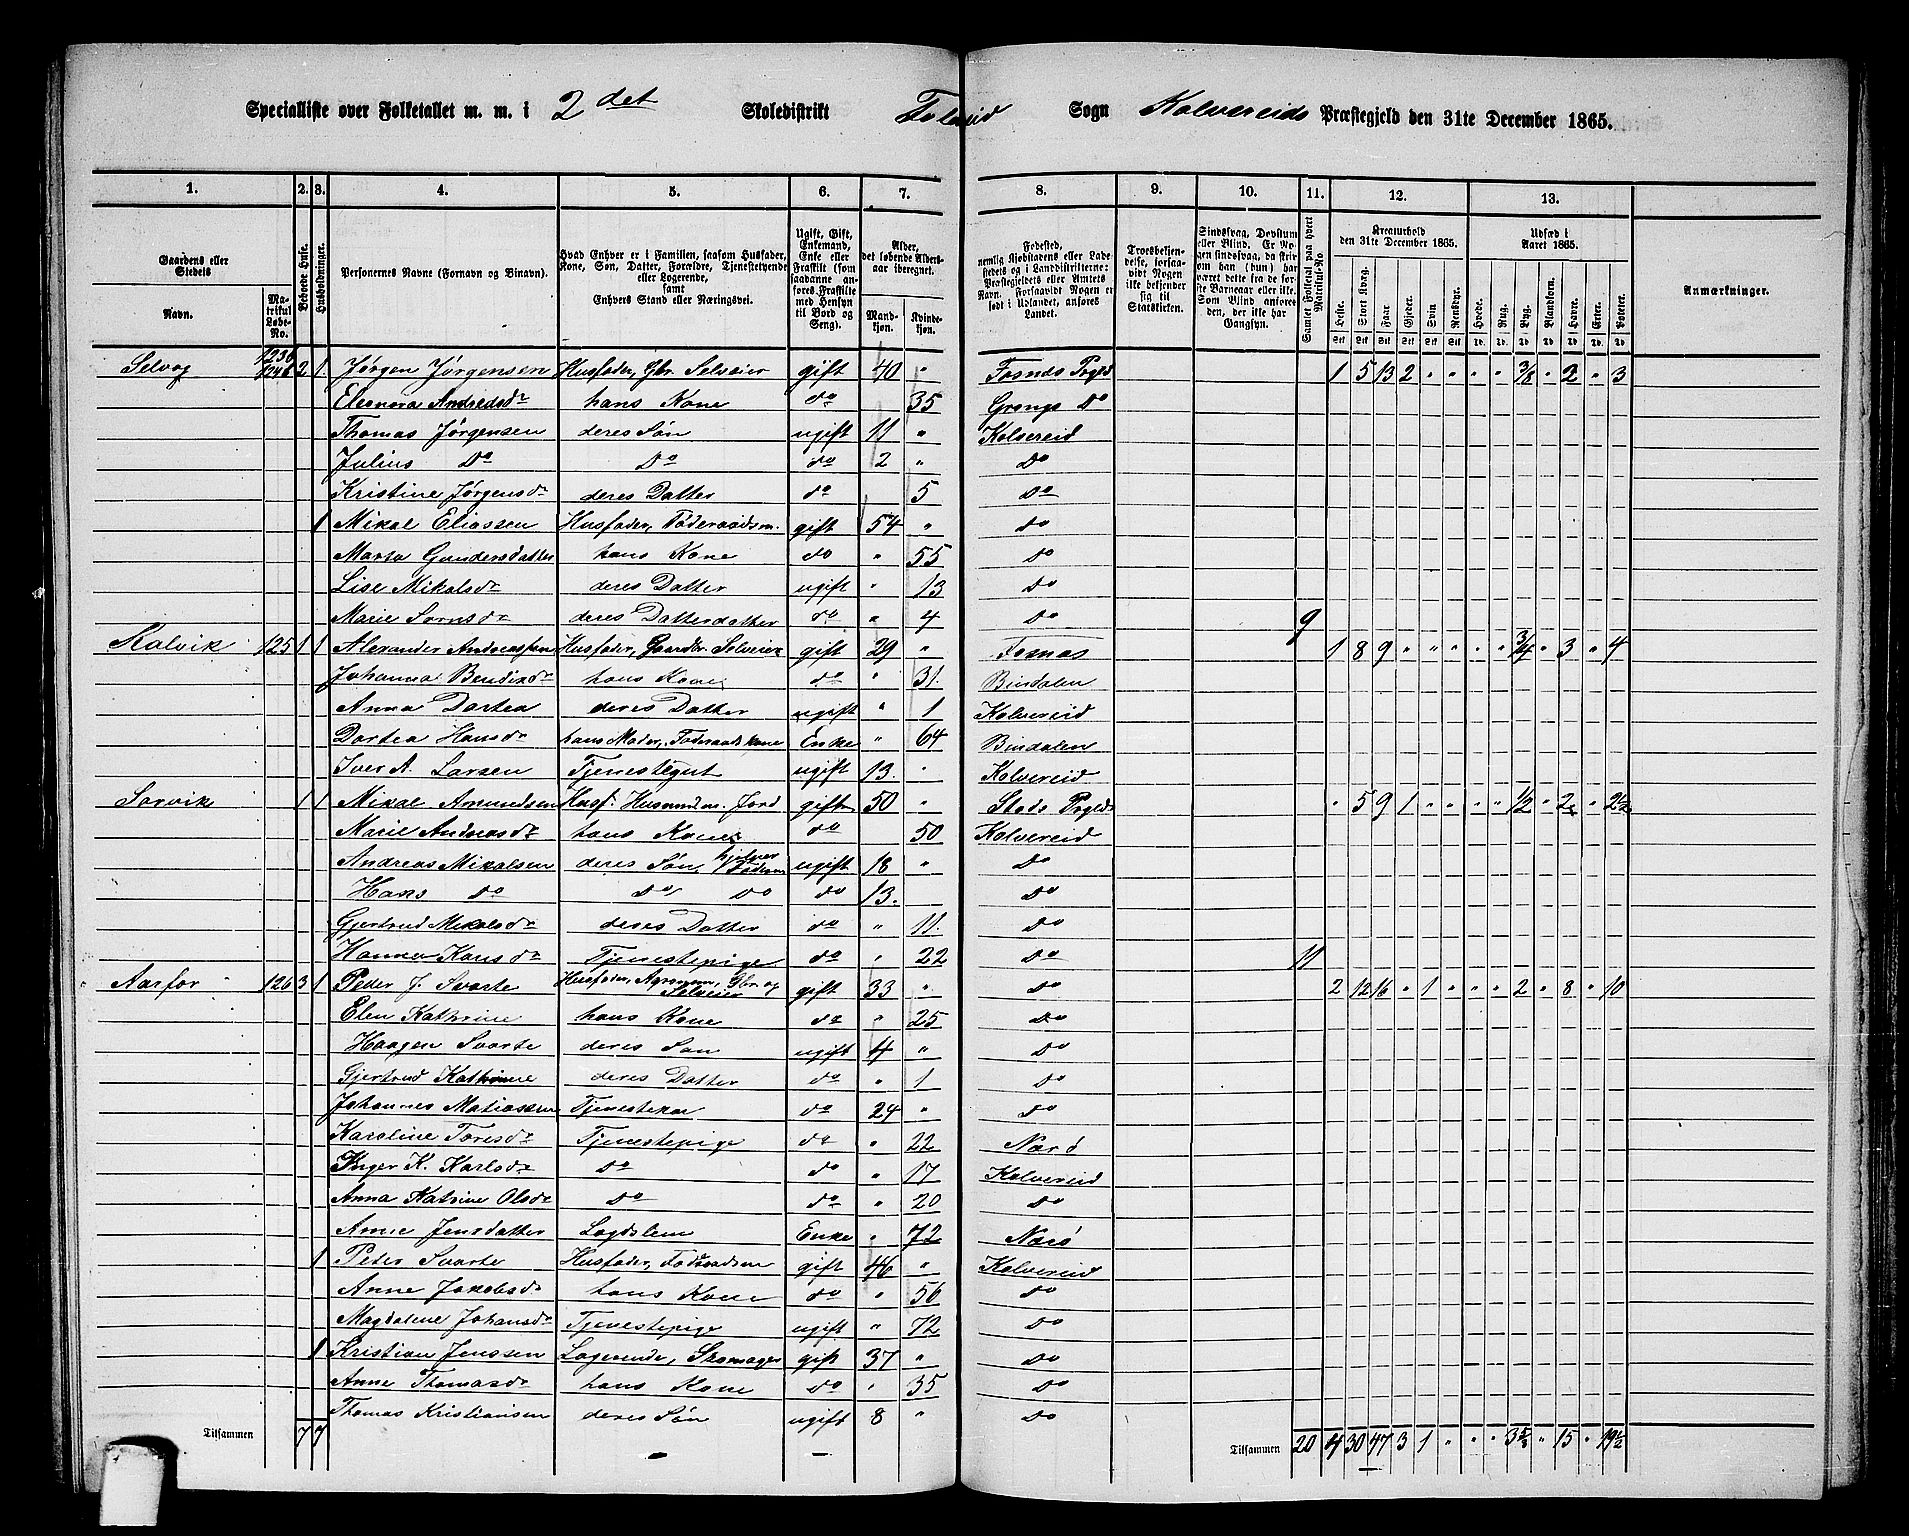 Specialliste over Folketallet m. m. i 2det Skoledistrikt Sogn Kolvereids Præstegjeld den 31te December 1865.
1. 2. 3. 4. 5. 6. 7. 8. 9. 10. 11. 12. 13.
Gaardens eller Stedets Navn. Matrikul Løbe-No. Beboede Huse. Husholdninger. Personernes Navne (Fornavn og Binavn). Hvad Enhver er i Familien, saasom Husfader, Kone, Søn, Datter, Forældre, Tjenestetyende eller Logerende, samt Enhvers Stand eller Næringsvei. Ugift, Gift, Enkemand, Enke eller Fraskilt (som saadanne anføres Fraskilte med Hensyn til Bord og Seng). Alder, det løbende Aldersaar iberegnet. Mandkjøn. Kvindekjøn. Fødested, nemlig Kjøbstadens eller Ladestedets og i Landdistrikterne: Præstegjeldets eller Amtets Navn. Forsaavidt Nogen er født i Udlandet, anføres Landet. Troesbekjendelse, forsaavidt Nogen ikke bekjender sig til Statskirken. Sindssvag, Døvstum eller Blind. Er Nogen sindssvag, da skrives om han (hun) har været dette fra de første Barneaar eller ikke. Som Blind anføres den, der ikke har Gangsyn. Samlet Folketal paa hvert Matrikul-No Kreaturhold den 31te December 1865. Heste. Stort Kvæg. Faar Gjeder. Svin Rensdyr. Udsæd i Aaret 1865. Hvede. Rug. Byg. Blandkorn. Havre. Erter. Poteter. Anmærkninger.
Selvog 123b 124b 2 1 Jørgen Jørgensen Husfader, Gbr. Selveier gift 40 " Fosnes Prgld 1 5 13 2 " " " " 3/8 " 2 " 3
Eleonora Andreasdr hans Kone do 35 Grongs Do
Thomas Jørgensen deres Søn ugift 11 " Kolvereid
Julius Do Do do 2 " Do
Kristine Jørgensdr deres Datter do 5 Do
1 Mikal Eliassen Husfader, Føderaadsm. gift 54 " do
Marta Gundersdatter hans Kone do " 55 Do
Lise Mikalsdr deres Datter ugift " 13 Do
Marie Sornsdr deres Datterdatter do " 4 Do 9
Kalvik 125 1 1 Alexander Andreassen Husfader, Gaardbr. Selveier gift 29 " Fosnas 1 8 9 " " " " " 3/4 " 3 " 4
Johanna Bendixdr hans Kone do " 31. Bindalen
Anna Dortea deres Datter ugift " 1 Kolvereid
Dortea Hansdr hans Moder, Føderaadskone Enke " 64 Bindalen
Iver A. Larsen Tjenestegut ugift 13. " Kolvereid
Sorvik 1 1 Mikal Amundsen Husf. Husmand m. Jord gift 50 " Stods Prgld " 5 9 1 " " " " 1/2 " 2 " 2 1/2
Marie Andreasdr hans Kone do 50 Kolvereid
Andreas Mikalsen deres Søn, hjelper Faderen ugift 18 " Do
Hans do do do do 13. Do
Gjertrud Mikalsdr deres Datter do " 11. Do
Hanna Hansdr Tjenestepige do " 22 Do 11
Aarfor 126 3 1 Peder J. Svarte Husfader, Agronom, Gbr. og Selveier gift 33 " Do 2 12 16 " 1 " " " 2 " 8 " 10
Elen Kathrine hans Kone do " 25 Do
Haagen Svarte deres Søn ugift 4 " Do
Gjertrud Kathrine deres Datter do " 1 Do
Johannes Matiassen Tjenestekar do 24 " Do
Karoline Toresdr Tjenestepige do " 22 Nærø
Inger K. Karlsdr do do " 17 Kolvereid
Anna Katrine Olsdr Do do " 20 Do
Anne Jensdatter Lægdslem Enke " 72 Nærø
1 Peter Svarte Husfader, Føderaadsm gift 46 " Kolvereid
Anne Jakobsdr hans Kone do " 56 Do
Magdalene Johansdr Tjenestepige ugift " 72 Do
1 Kristian Jenssen Logerende, Skomager gift 37 " Do
Anne Thomasdr hans Kone do " 35 Do
Thomas Kristiansen deres Søn ugift 8 " Do
Tilsammen 7 7 Tilsammen 20 4 30 47 3 1 " " " 3 5/8 " 15 " 19 1/2